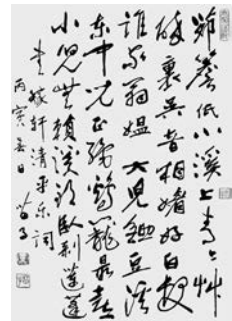 茆簷低小溪上青〻艸
醉裏吴音相媚好白髮
誰家翁媪大兒鋤豆溪
东中兒正織鷄籠最喜
小兒無賴溪頭卧剝蓮蓬
書稼軒清平乐詞
丙寅春日